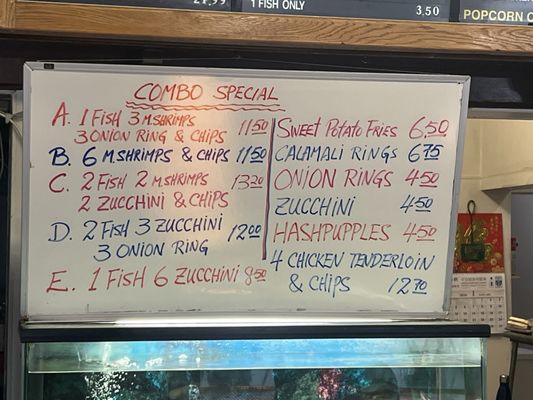 21.99
1 FISH ONLY
3.50
POPCORN
COMBO SPECIAL
A. 1 FISH 3 M.SHRIMPS
3 ONION RING & CHIPS 11.50
B. 6 M.SHRIMPS & CHIPS 11.50
C. 2 FISH 2 M.SHRIMPS 13.20
2 ZUCCHINI & CHIPS
D. 2 FISH 3 ZUCCHINI 12.00
3 ONION RING
E. 1 FISH 6 ZUCCHINI 8.50
SWEET POTATO FRIES 6.50
CALAMALI RINGS 6.75
ONION RINGS 4.50
ZUCCHINI 4.50
HASHPUPPLES 4.50
4 CHICKEN TENDERLOIN
& CHIPS 12.70